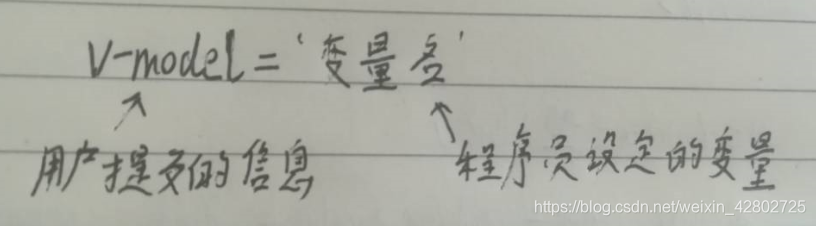 V-model='变量名'
用户提交的信息 程序员设定的变量
https://blog.csdn.net/weixin_42802725